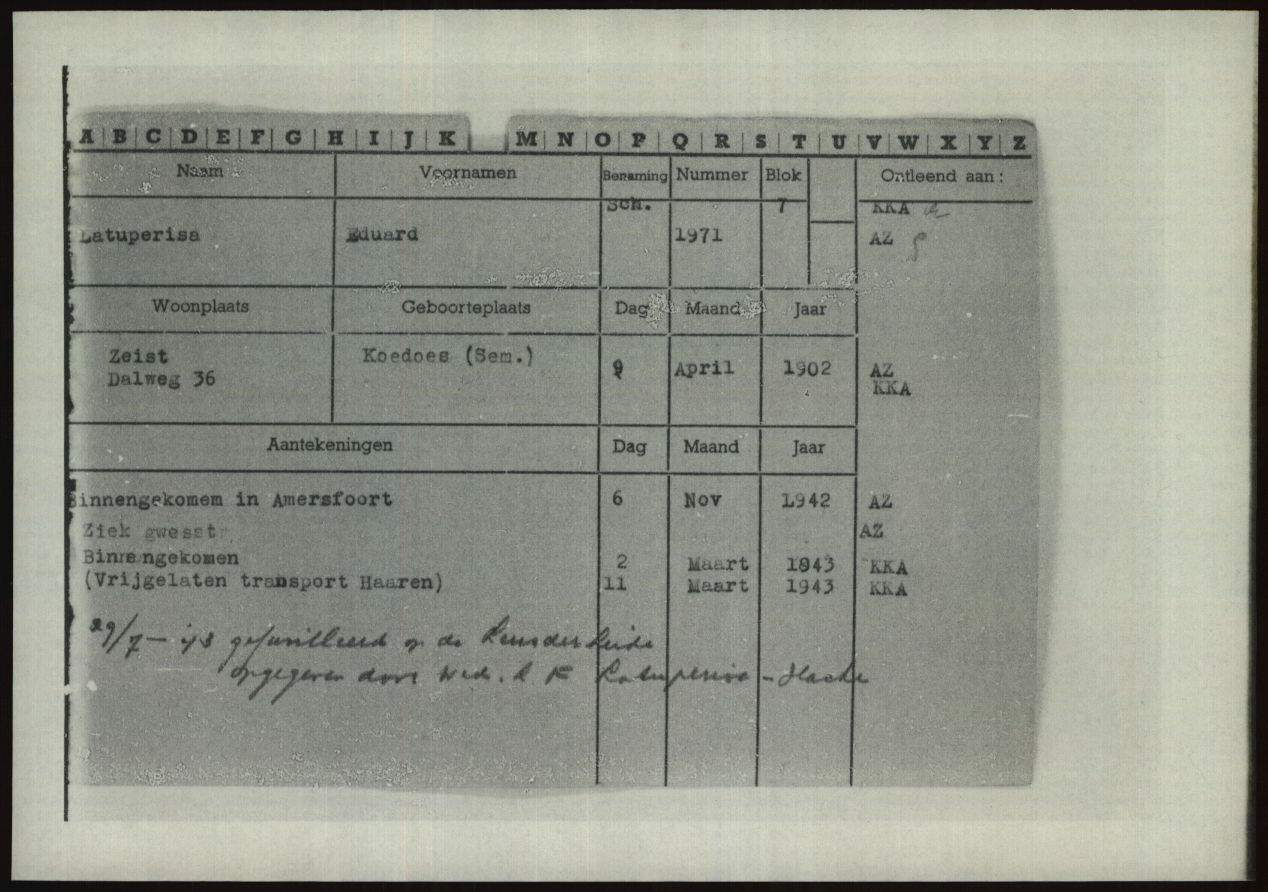 A B C D E F G H I J K M N O P Q R S T U V W X Y Z
Naam Voornamen Benaming Nummer Blok Ontleend aan:
Sch. 7 KKA
Latuperisa Eduard 1971 AZ
Woonplaats Geboorteplaats Dag Maand Jaar
Zeist Koedoes (Sem.) 9 April 1902 AZ
Dalweg 36 KKA
Aantekeningen Dag Maand Jaar
Binnengekomem in Amersfoort 6 Nov 1942 AZ
Ziek gweest AZ
Binnengekomen 2 Maart 1943 KKA
(Vrijgelaten transport Haaren) 11 Maart 1943 KKA
29/7 — is gefusilleerd op de Leusderheide
opgegeven door Wed. Latuperisa -